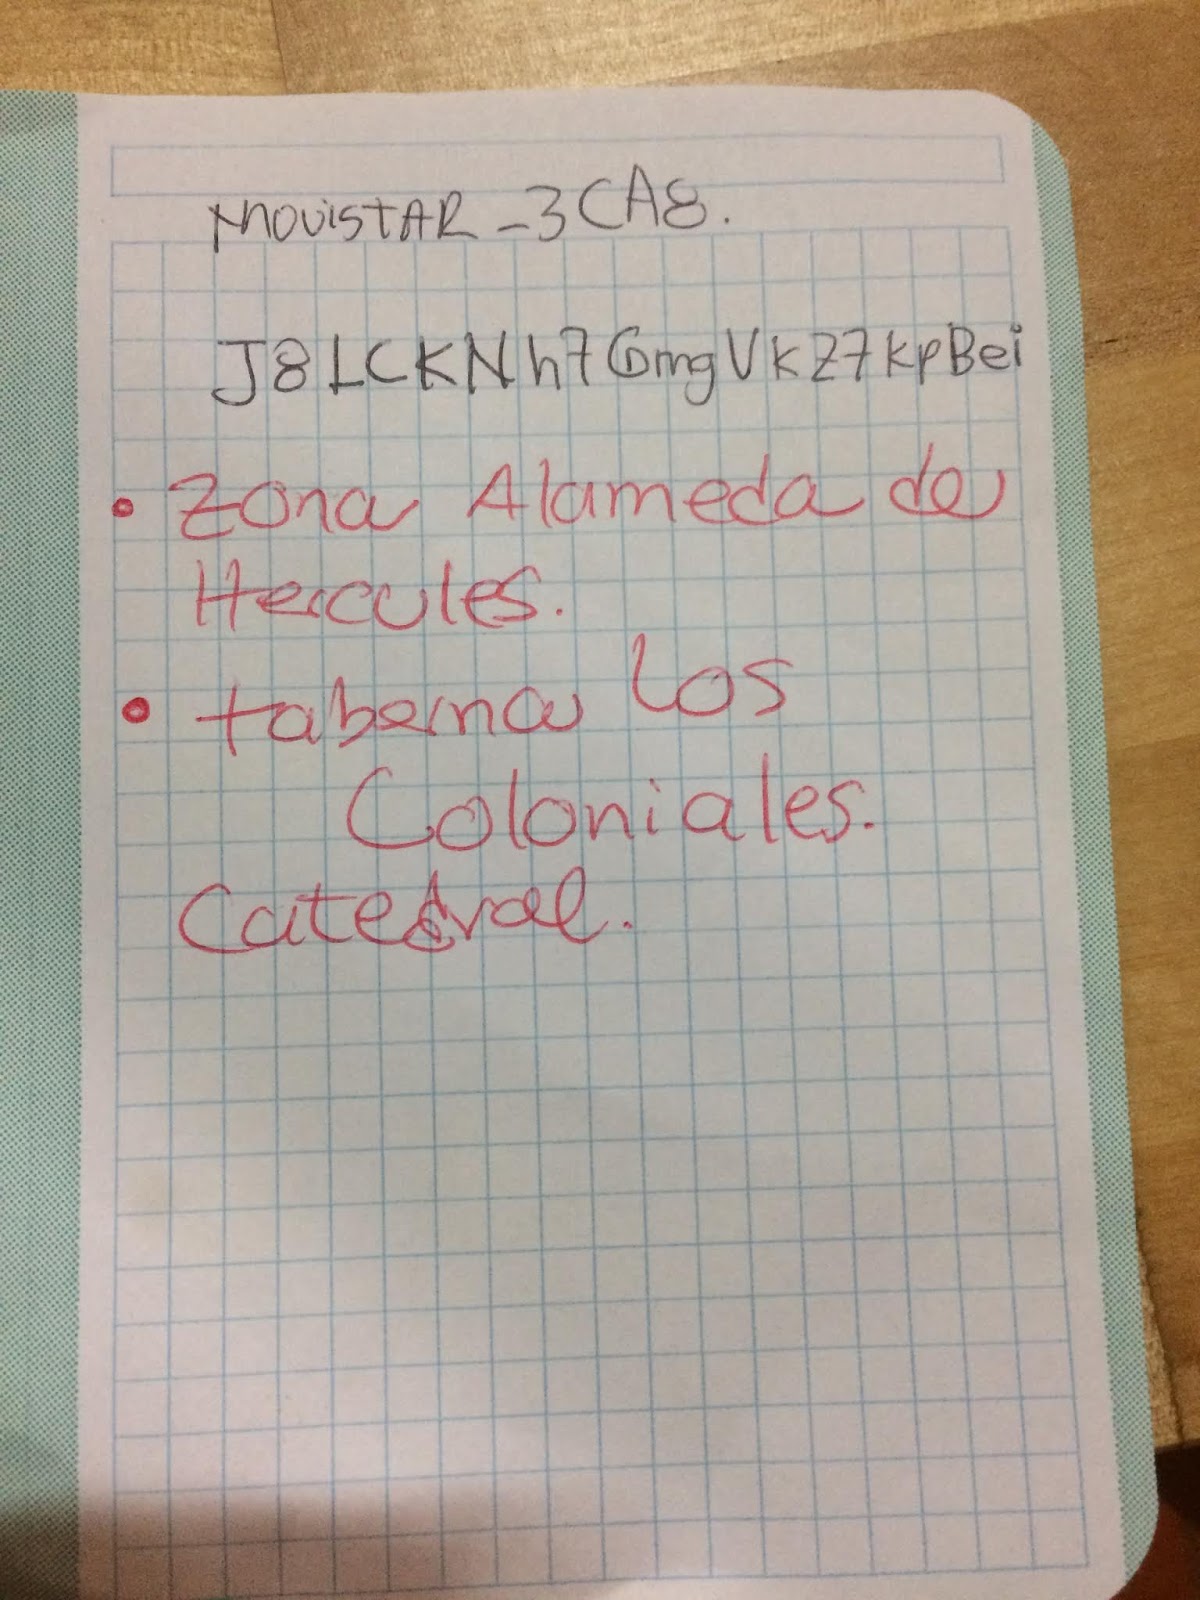 MOVISTAR_3CA8.
J8LCKNh7GmgVkZ7KpBei
• Zona Alameda de
Hercules.
• taberna Los
Coloniales.
Catedral.